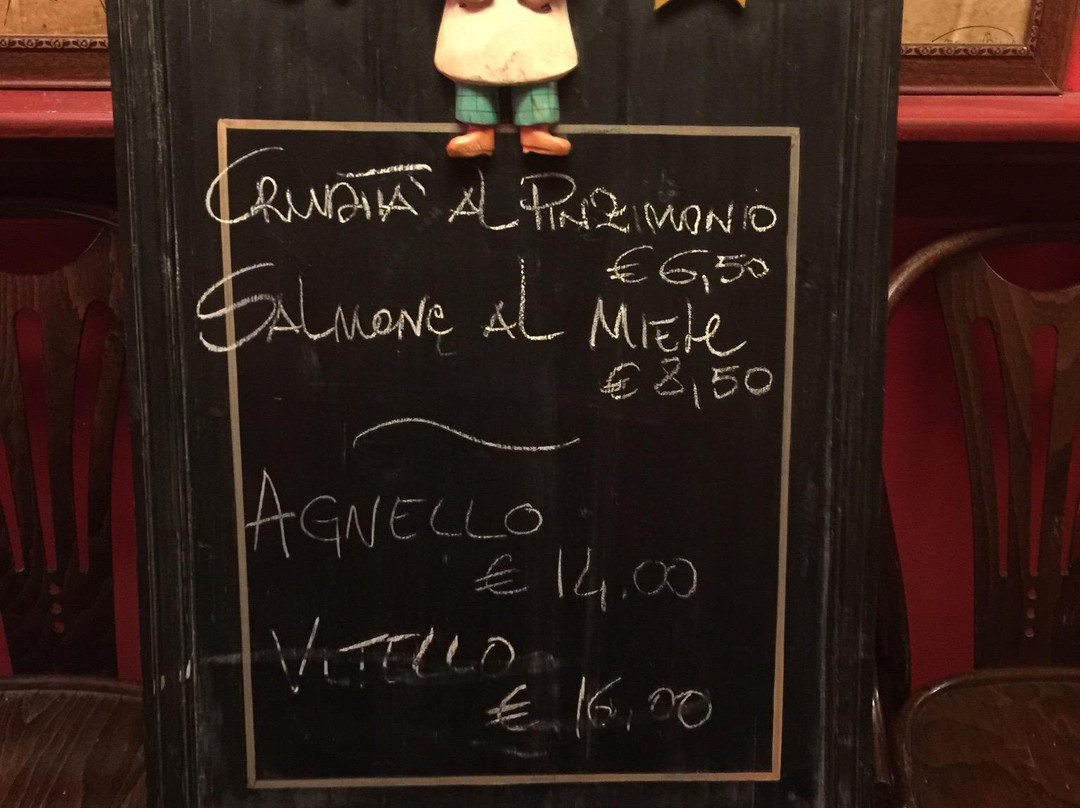 CRUDITÀ AL PINZIMONIO
€ 6,50
SALMONE AL MIELE
€ 8,50
AGNELLO
€ 14,00
VITELLO
€ 16,00